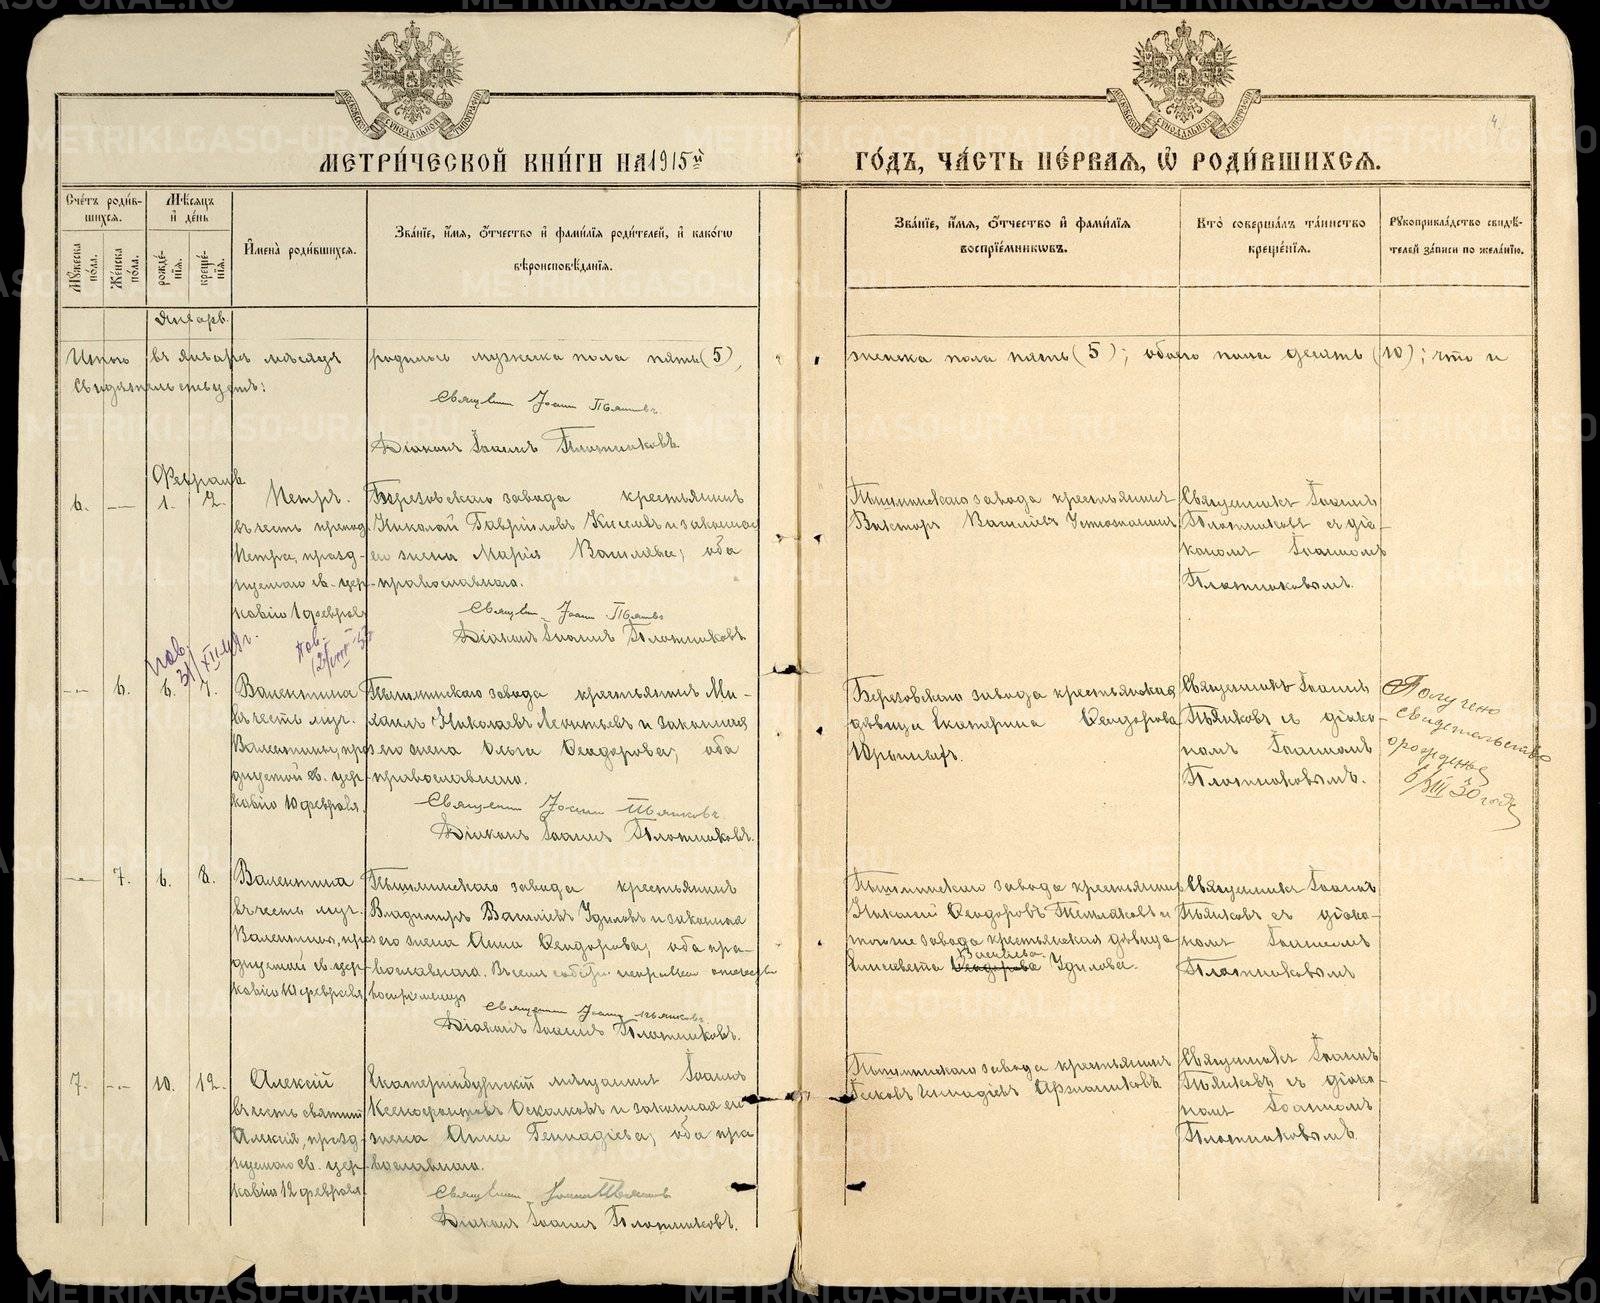 МОСКОВСКОЙ СУНОДАЛЬНОЙ ТИПОГРАФІИ
МЕТРИ́ЧЕСКОЙ КНИ́ГИ НА 1915й
ГО́ДЪ, ЧА́СТЬ ПЕ́РВАЯ, Ѡ РОДИ́ВШИХСЯ.
Сче́тъ роди́в-
шихся.
Мꙋ́жеска по́ла.
Же́нска по́ла.
Мѣ́сяцъ
и де́нь
рожде́нїя.
креще́нїя.
И҆мена̀ роди́вшихся.
Зва́нїе, и҆́мя, о҆́тчество и҆ фами́лїя роди́телей, и҆ како́гѡ
вѣроисповѣ́данїя.
Зва́нїе, и҆́мя, о҆́тчество и҆ фами́лїя
воспрїе́мникѡвъ.
Кто̀ соверша́лъ та́инство
креще́нїя.
Рꙋкоприкла́дство свидѣ́-
телей за́писи по жела́нїю.
Январь.
Итого въ январѣ мѣсяцѣ родилось мужеска пола пять (5),
женска пола пять (5); обоего пола десять (10); что и
свидѣтельствуетъ:
Священн Іоаннъ Пьянковъ
Діаконъ Іоаннъ Плотниковъ
Февраль
6. — 1. 2. Петръ.
въ честь препод.
Петра, празд-
нуемаго св. цер-
ковію 1 февраля
Березовскаго завода крестьянинъ
Николай Гавріиловъ Киселевъ и законная
его жена Марія Васильева, оба
православнаго.
Священ Іоаннъ Пьянковъ
Діаконъ Іоаннъ Плотниковъ
Пышминскаго завода крестьянинъ
Викторъ Василіевъ
Священникъ Іоаннъ
с діа-
кономъ Іоанномъ
Плотниковымъ.
Пов.
31/XII-49г.
Пов.
— 6. 6. 7. Валентина
въ честь муч.
Валентины, пра-
зднуемой св. цер-
ковію 10 февраля.
Пышминскаго завода крестьянинъ Ми-
хаилъ Николаевъ Леонтьевъ и законная
его жена Ольга Ѳеодорова, оба
православнаго.
Священн Іоаннъ Пьянковъ
Діаконъ Іоаннъ Плотниковъ.
Березовскаго завода крестьянская
дѣвица Екатерина Ѳеодорова
Священникъ Іоаннъ
Пьянковъ с діако-
номъ Іоанномъ
Плотниковымъ.
Получено
свидетельство
о рожденье
6/VIII 30 года
— 7. 6. 8. Валентина
въ честь муч.
Валентины, пра-
зднуемой св. цер-
ковію 10 февраля.
Пышминскаго завода крестьянинъ
Владиміръ Василіевъ Удиловъ и законная
его жена Анна Ѳеодорова, оба пра-
вославнаго.
Священник Іоаннъ Пьянковъ
Діаконъ Іоаннъ Плотниковъ.
Пышминскаго завода крестьянинъ
Николай Ѳеодоровъ и
тогоже завода крестьянская дѣвица
Васильева
Елисавета Ѳеодорова Удилова.
Священникъ Іоаннъ
Пьянковъ с діако-
номъ Іоанномъ
Плотниковымъ
7. — 10. 12. Алексій
въ честь святит
Алексія, празд-
нуемаго св. цер-
ковію 12 февраля.
Екатеринбургскій мѣщанинъ Іоаннъ
Ксенофонтовъ и законная его
жена Анна Геннадіева, оба пра
вославнаго.
Священн Іоаннъ Пьянковъ
Діаконъ Іоаннъ Плотниковъ.
Пышминскаго завода крестьянинъ
Священникъ Іоаннъ
Пьянковъ с діако-
номъ Іоанномъ
Плотниковымъ.
METRIKI.GASO-URAL.RU